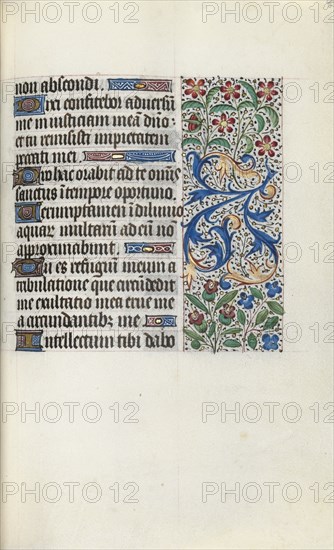 non abscondi.
Dixi confitebor adversū
me in iusticiam meā dño:
et tu remisisti impietatem
peccati mei.
Pro hac orabit ad te oīns
sanctus ī tempore oportuno
Verumptamen ī diluuio
aquar multarū ad eū nō
approximabunt.
Tu es refugiū meum a
tribulatione que circūdedit
me exultatio mea erue me
a circumdantibȝ me
Intellectum tibi dabo
PHOTO 12
PHOTO 12
PHOTO 12
PHOTO 12
PHOTO 12
PHOTO 12
PHOTO 12
PHOTO 12
PHOTO 12
PHOTO 12